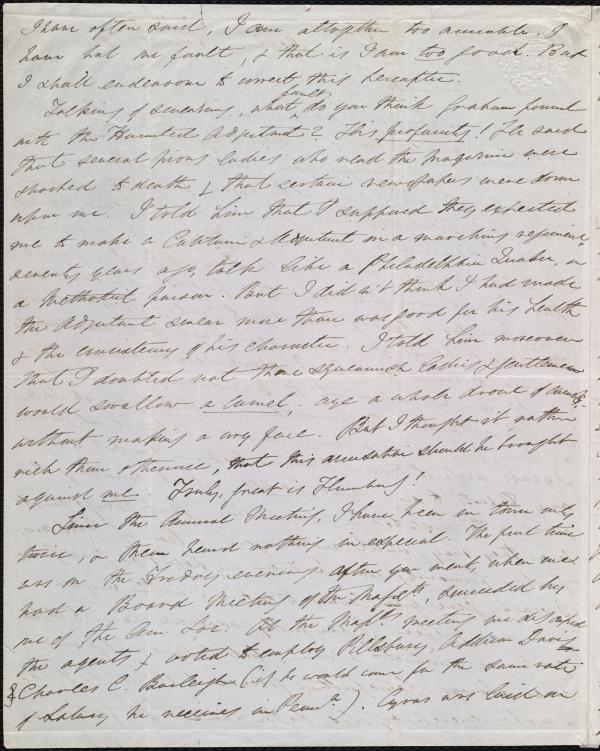 I have often said, I am altogether too amiable. I
have but one fault, & that is I am too good. But
I shall endeavour to correct this hereafter.
Talking of swearing, what fault do you think Graham found
with the Haunted Adjutant? His profanity! He said
that several pious ladies who read the Magazine were
shocked to death & that certain newspapers were down
upon me. I told him that I supposed they expected
me to make a Captain & Adjutant in a marching regiment,
seventy years ago, talk like a Philadelphia Quaker, or
a Methodist parson. But I did n't think I had made
the Adjutant swear more than was good for his health
& the consistency of his character. I told him moreover
that I doubted not these squeamish ladies & gentlemen
would swallow a camel, aye a whole drove of camels,
without making a wry face. But I thought it rather
rich than otherwise, that this accusation should be brought
against me. Truly, great is Humbug!
Since the Annual Meeting, I have been in town only
twice, & then heard nothing in especial. The first time
was on the Friday evening after you went, when we
had a Board Meeting of the Massts., succeeded by
one of the Am. Soc. At the Massts. meeting we discussed
the agents & voted to employ Pillsbury, Addison Davis
& Charles C. Burleigh (if he would come for the same rate
of Salary he receives in Penna.). Cyrus was laid on